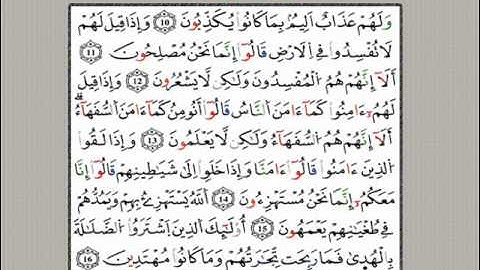 وَلَهُمْ عَذَابٌ أَلِيمٌۢ بِمَا كَانُوا۟ يُكَذِّبُونَ ۝10 وَإِذَا قِيلَ لَهُمْ
لَا تُفْسِدُوا۟ فِى اِ۬لَارْضِ قَالُوٓا۟ إِنَّمَا نَحْنُ مُصْلِحُونَ ۝11
أَلَآ إِنَّهُمْ هُمُ اُ۬لْمُفْسِدُونَ وَلَٰكِن لَّا يَشْعُرُونَ ۝12 وَإِذَا قِيلَ
لَهُمُۥٓ ءَامِنُوا۟ كَمَآ ءَامَنَ اَ۬لنَّاسُ قَالُوٓا۟ أَنُومِنُ كَمَآ ءَامَنَ اَ۬لسُّفَهَآءُ
أَلَآ إِنَّهُمْ هُمُ اُ۬لسُّفَهَآءُ وَلَٰكِن لَّا يَعْلَمُونَ ۝13 وَإِذَا لَقُوا۟
اُ۬لذِينَ ءَامَنُوا۟ قَالُوٓا۟ ءَامَنَّا وَإِذَا خَلَوِا۟ اِلَىٰ شَيَٰطِينِهِمْ قَالُوٓا۟ إِنَّا
مَعَكُمُۥٓ إِنَّمَا نَحْنُ مُسْتَهْزِءُونَ ۝14 اَ۬للَّهُ يَسْتَهْزِئُ بِهِمْ وَيَمُدُّهُمْ
فِى طُغْيَٰنِهِمْ يَعْمَهُونَ ۝15 أُو۟لَٰٓئِكَ اَ۬لذِينَ اَ۪شْتَرَوُا۟ اُ۬لضَّلَٰلَةَ
بِالْهُدَىٰ فَمَا رَبِحَت تِّجَٰرَتُهُمْ وَمَا كَانُوا۟ مُهْتَدِينَ ۝16